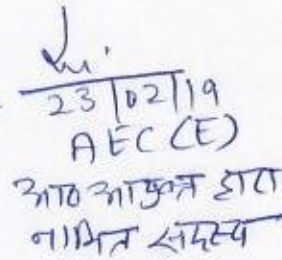 23/02/19
AEC (E)
आ० आयुक्त द्वारा
नामित सदस्य